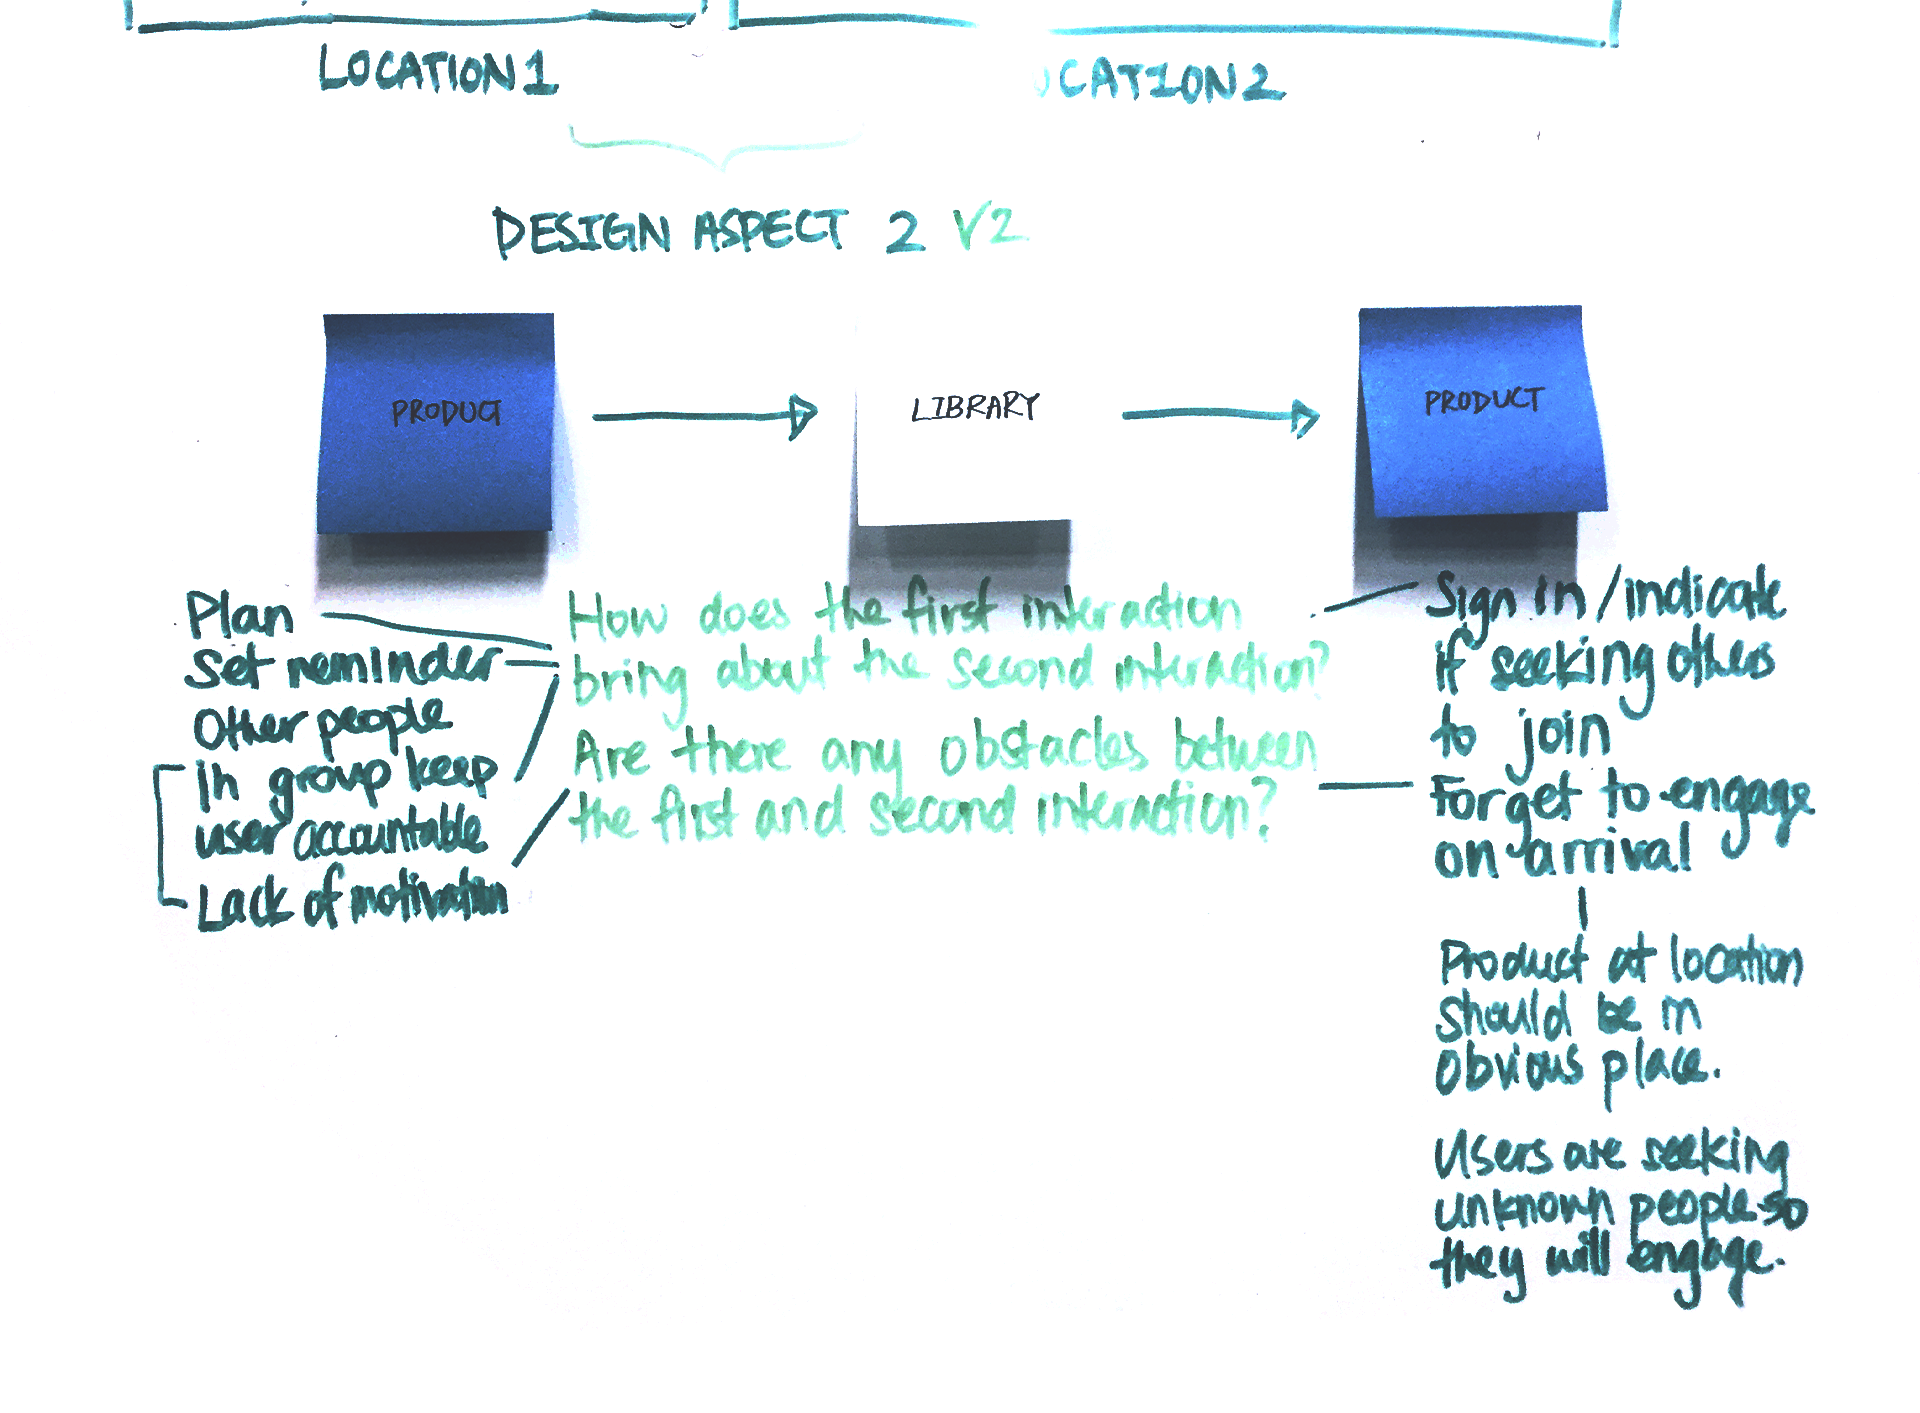 LOCATION1
OCATION2
DESIGN ASPECT 2 V2
PRODUCT
LIBRARY
PRODUCT
Plan
Set reminder
Other people
in group keep
user accountable
Lack of motivation
How does the first interaction
bring about the second interaction?
Are there any obstacles between
the first and second interaction?
Sign in/indicate
if seeking others
to join
Forget to engage
on arrival
Product at location
should be in
obvious place.
Users are seeking
unknown people so
they will engage.